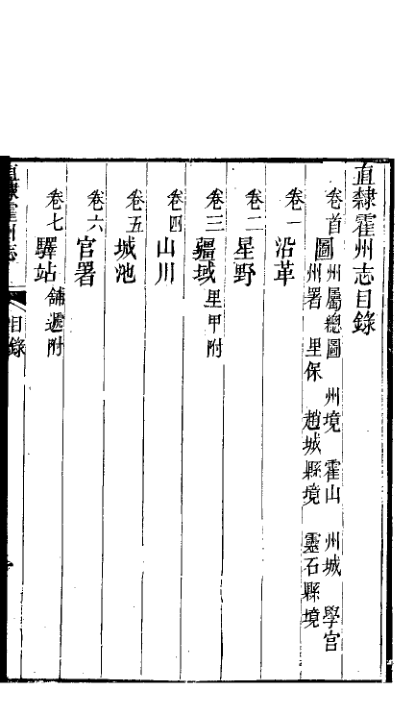 直隸霍州志目錄
卷首
圖 州屬總圖 州境 霍山 州城 學宫
州署 里保 趙城縣境 靈石縣境
卷一
沿革
卷二
星野
卷三
疆域 里甲附
卷四
山川
卷五
城池
卷六
官署
卷七
驛站 鋪遞附
直隸霍州志
目錄